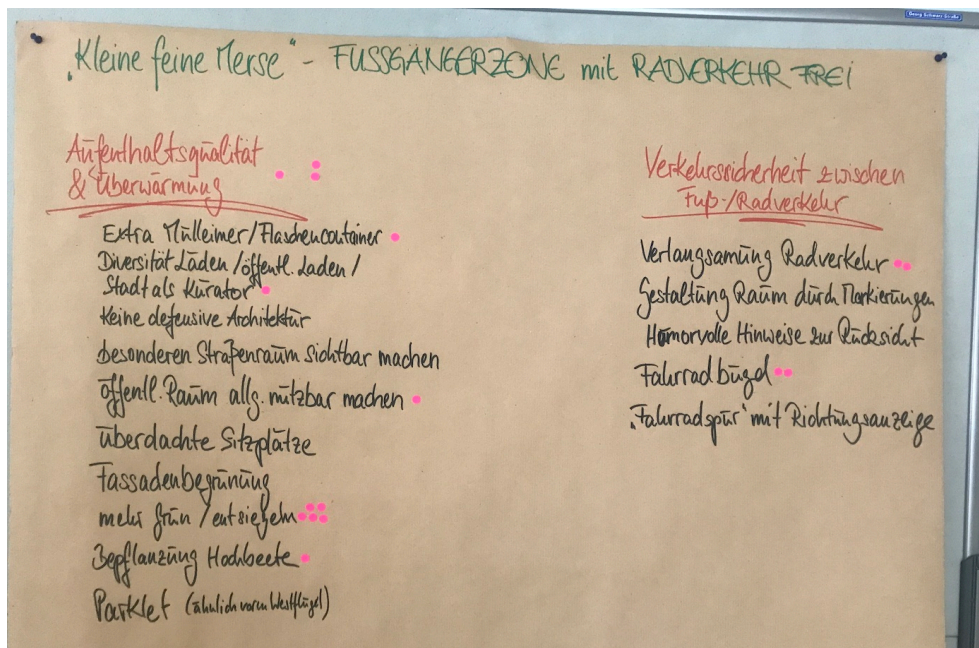 „Kleine feine Merse" - FUSSGÄNGERZONE mit RADVERKEHR FREI
Aufenthaltsqualität
& Überwärmung
Extra Mülleimer/Flaschencontainer
Diversität Läden/öffentl. Laden/
Stadt als Kurator
Keine defensive Architektur
besonderen Straßenraum sichtbar machen
öffentl. Raum allg. nutzbar machen
überdachte Sitzplätze
Fassadenbegrünung
mehr grün/entsiegeln
Bepflanzung Hochbeete
Parklet (ähnlich vorm Westflügel)
Verkehrssicherheit zwischen
Fuß-/Radverkehr
Verlangsamung Radverkehr
Gestaltung Raum durch Markierungen
Humorvolle Hinweise zur Rücksicht
Fahrradbügel
„Fahrradspur" mit Richtungsanzeige